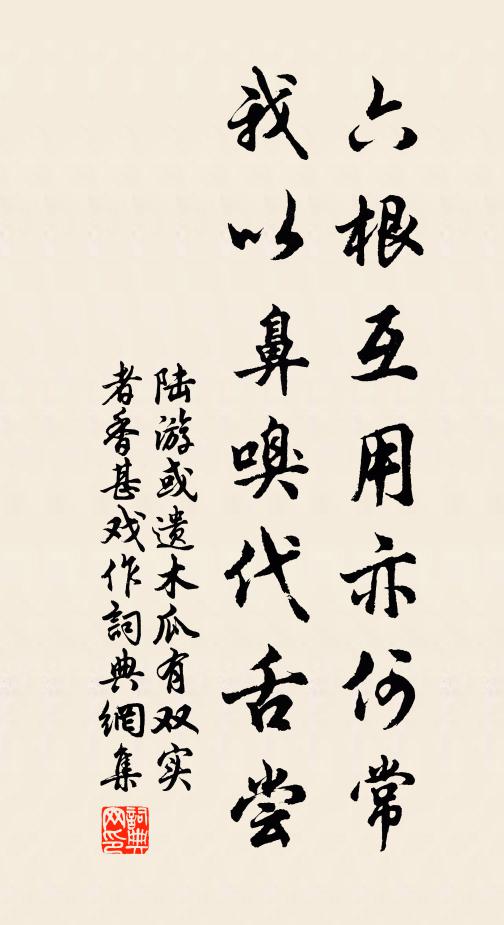 六根互用亦何常
我以鼻嗅代舌尝
陆游或遗木瓜有双实
者香甚戏作词典網集
詞典網印